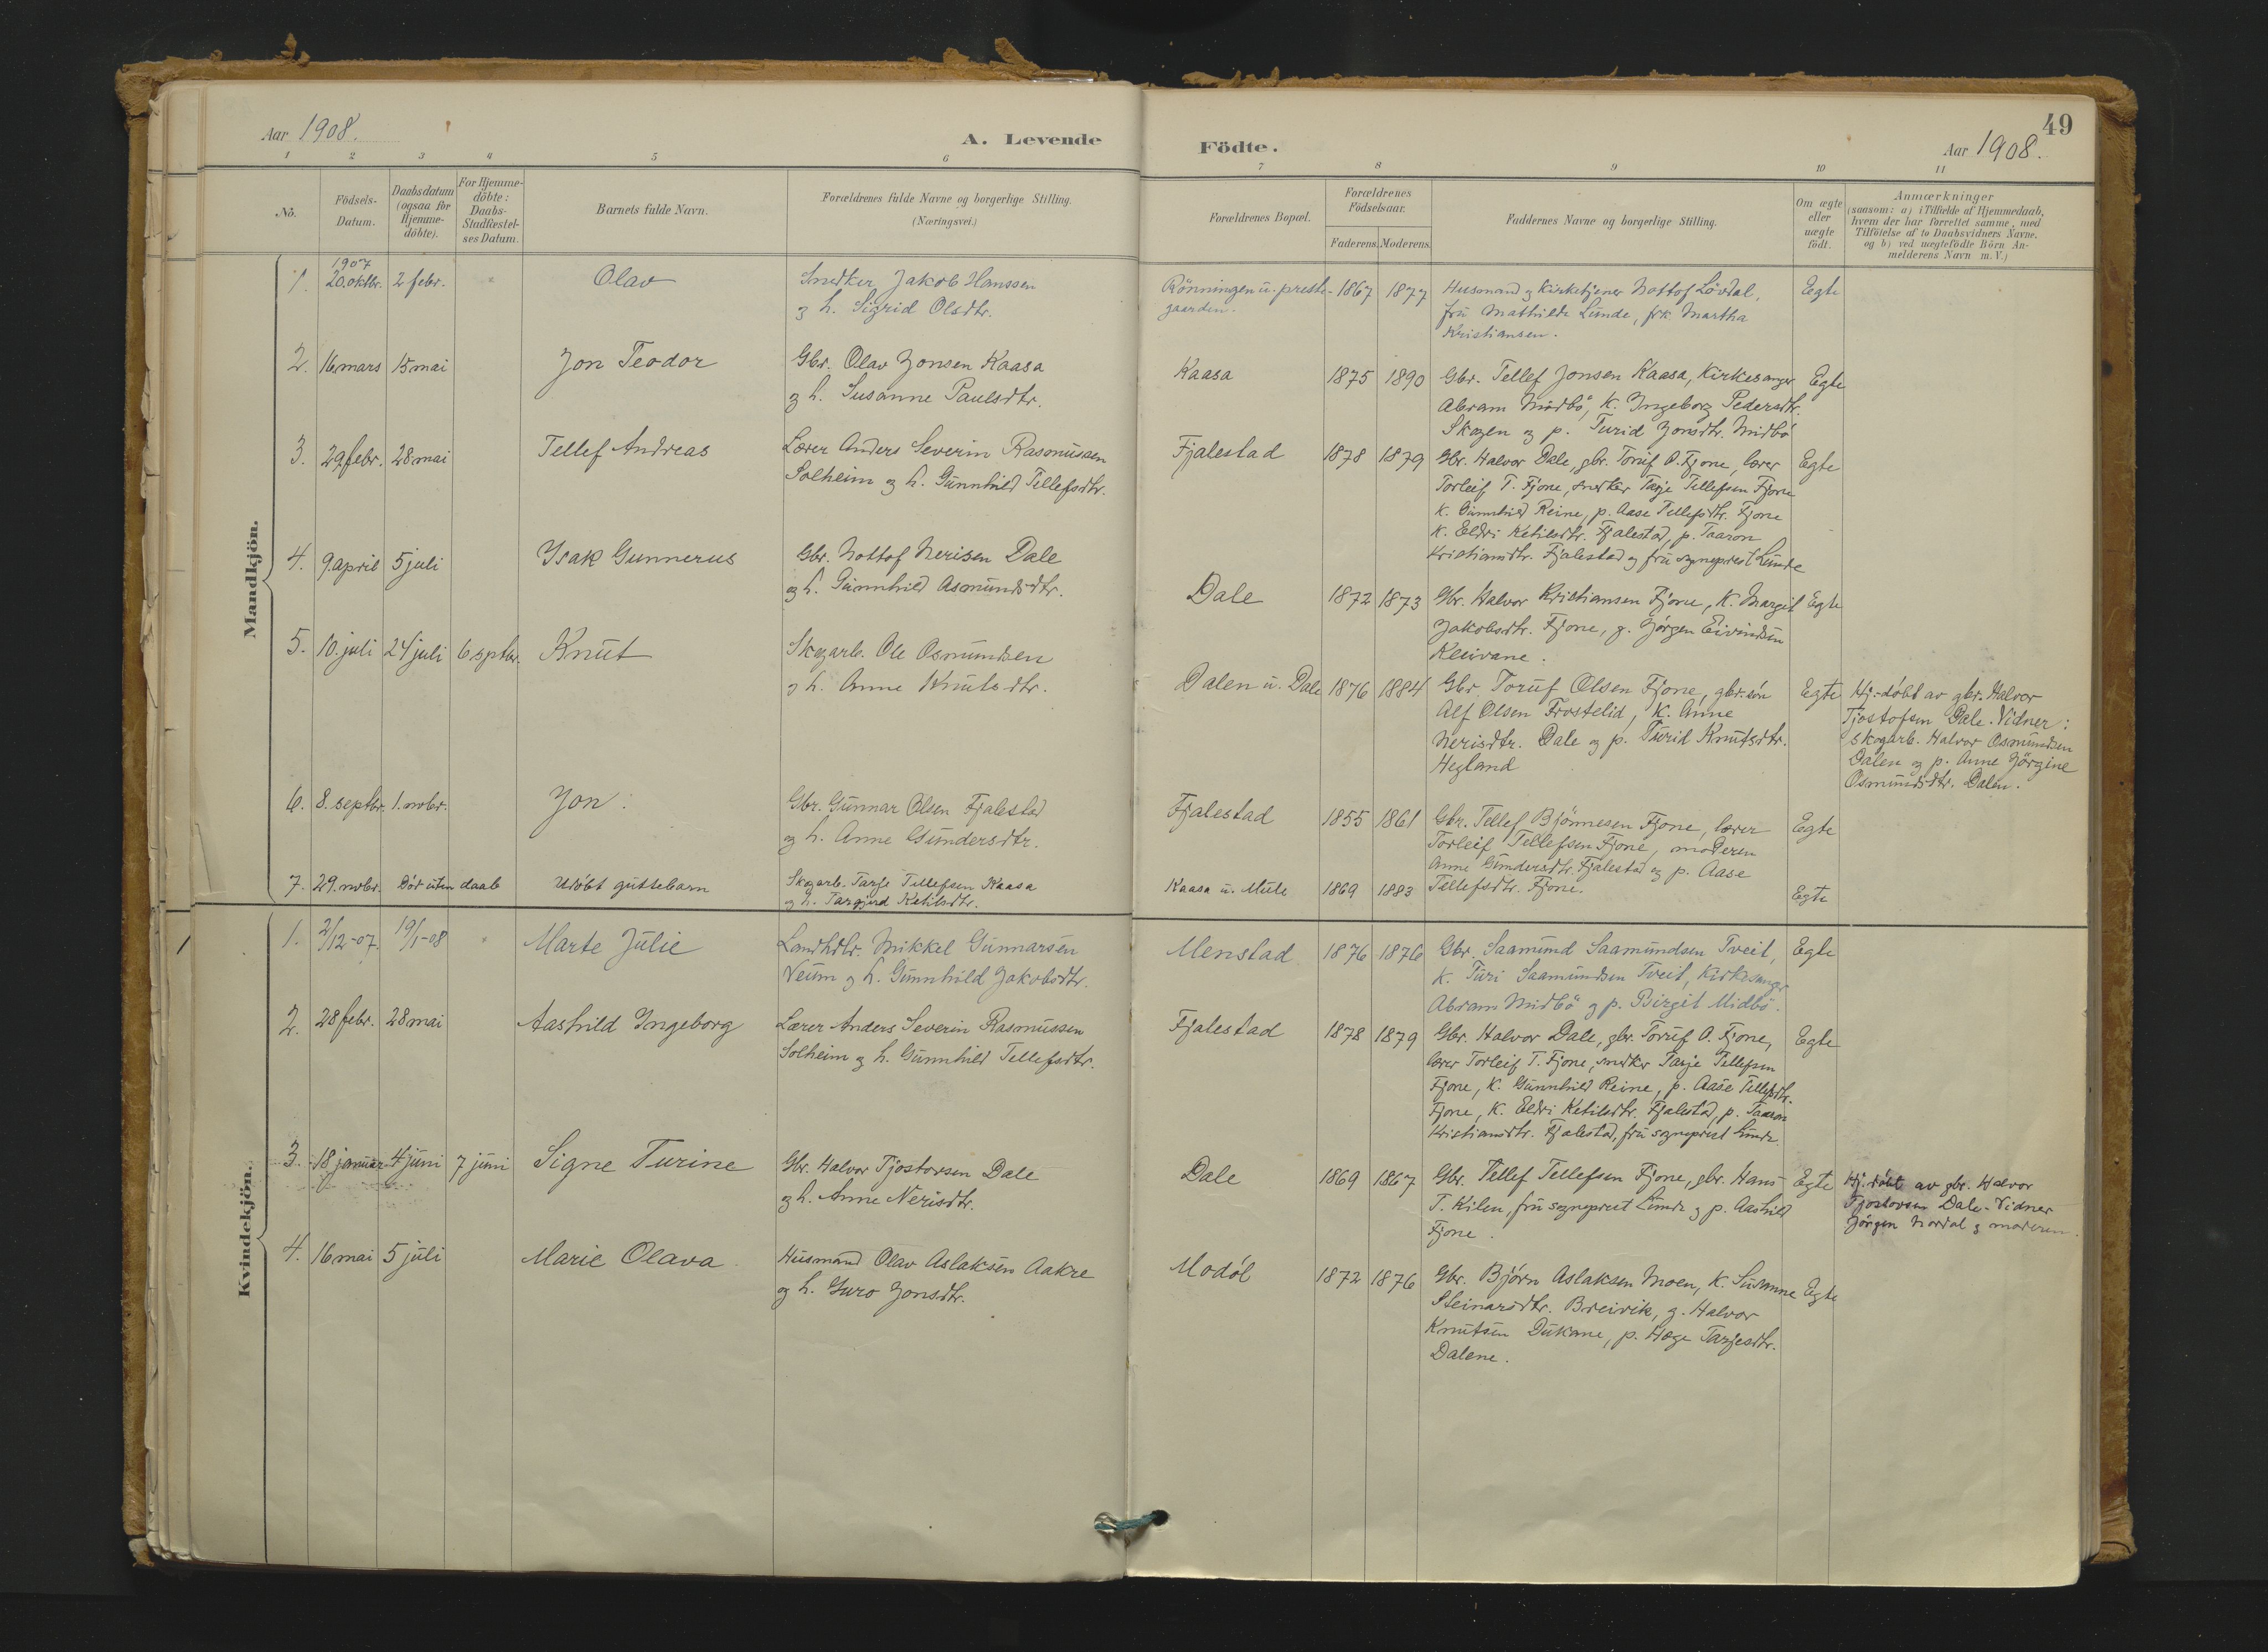 Aar 1908.
A. Levende
Födte.
49
Aar 1908.
1 2 3 4 5 6 7 8 9 10 11
No.
Födsels-
Datum.
Daabsdatum
(ogsaa for
Hjemme-
döbte).
For Hjemme-
döbte:
Daabs-
Stadfæstel-
ses Datum.
Barnets fulde Navn.
Forældrenes fulde Navne og borgerlige Stilling.
(Næringsvei.)
Forældrenes Bopæl.
Forældrenes
Födselsaar.
Faderens. Moderens.
Faddernes Navne og borgerlige Stilling.
Om ægte
eller
uægte
födt.
Anmærkninger
(saasom: a) i Tilfælde af Hjemmedaab,
hvem der har forrettet samme, med
Tilföielse af to Daabsvidners Navne.
og b) ved uægtefödte Börn An-
melderens Navn m. V.)
Mandkjön.
1907
1. 20. oktbr. 2 febr. " Olav
Snedker Jakob Hanssen
og h. Sigrid Olsdtr.
Rönningen u. preste-
gaarden.
1867 1877
Husmand og kirketjener Nottof Lövdal,
fru Mathilde Lunde, frk. Martha
Kristiansen.
Egte
2. 16 mars 15 mai Jon Teodor
Gbr. Olav Jonsen Kaasa
og h. Susanne Paulsdtr.
Kaasa 1875 1890
Gbr. Tellef Jonsen Kaasa, Kirkesanger
Abram Midbö, K. Ingeborg Pedersdtr.
Skogen og p. Turid Jonsdtr. Midbö
Egte
3. 29 febr. 28 mai Tellef Andreas
Lærer Anders Severin Rasmussen
Solheim og h. Gunnhild Tellefsdtr.
Fjalestad 1878 1879
Gbr. Halvor Dale, gbr. Toruf O. Fjone, lærer
Torleif T. Fjone, snedker Tarje Tellefsen Fjone
K. Gunnhild Reine, p. Aase Tellefsdtr. Fjone
K. Eldri Ketilsdtr. Fjalestad, p. Taaron
Kristiansdtr. Fjalestad og fru sogneprest Lunde
Egte
4. 9 april 5 juli Isak Gunnerus
Gbr. Nottof Nerisen Dale
og h. Gunnhild Asmundsdtr.
Dale 1872 1873
Gbr. Halvor Kristiansen Fjone, K. Margit
Jakobsdtr. Fjone, g. Jörgen Eivindsen
Kleivane.
Egte
5. 10. juli 24 juli 6 septbr. Knut
Skogarb. Ole Osmundsen
og h. Anne Knutsdtr.
Dalen u. Dale 1876 1884
Gbr. Toruf Olsen Fjone, gbr. sön
Alf Olsen Frostelid, K. Anne
Nerisdtr. Dale og p. Turid Knutsdtr.
Hegland
Egte
Hj.-döbt av gbr. Halvor
Tjostofsen Dale. Vidner:
skogarb. Halvor Osmundsen
Dalen og p. Anne Jörgine
Osmundsdtr. Dalen.
6. 8. septbr. 1. novbr. Jon
Gbr. Gunnar Olsen Fjalestad
og h. Anne Gundersdtr.
Fjalestad 1855 1861
Gbr. Tellef Björnnesen Fjone, lærer
Torleif Tellefsen Fjone, moderen
Anne Gundersdtr. Fjalestad og p. Aase
Tellefsdtr. Fjone.
Egte
7. 29. novbr. Död uten daab Udöbt guttebarn
Skogarb. Tarje Tellefsen Kaasa
og h. Targjerd Ketilsdtr.
Kaasa u. Mule 1869 1883
Egte
Kvindekjön.
1
1. 2/12-07. 19/1-08 " Marte Julie
Landhdlr. Mikkel Gunnarsen
Veum og h. Gunnhild Jakobsdtr.
Menstad 1876 1876
Gbr. Saamund Saamundsen Tveit,
K. Turi Saamundsen Tveit, Kirkesanger
Abram Midbö og p. Birgit Midbö.
Egte
2. 28 febr. 28 mai Aashild Ingeborg
Lærer Anders Severin Rasmussen
Solheim og h. Gunnhild Tellefsdtr.
Fjalestad 1878 1879
Gbr. Halvor Dale, gbr. Toruf O. Fjone,
lærer Torleif T. Fjone, snedker Tarje Tellefsen
Fjone, K. Gunnhild Reine, p. Aase Tellefsdtr.
Fjone, K. Eldri Ketilsdtr. Fjalestad, p. Taaron
Kristiansdtr. Fjalestad, fru sogneprest Lunde.
Egte
3. 18 januar 4 juni 7 juni Signe Turine
Gbr. Halvor Tjostovsen Dale
og h. Anne Nerisdtr.
Dale 1869 1867
Gbr. Tellef Tellefsen Fjone, gbr. Hans
T. Kilen, fru sogneprest Lunde og p. Aashild
Fjone.
Egte
Hj. döbt av gbr. Halvor
Tjostovsen Dale. Vidner
Jörgen Nordal og moderen.
4. 16 mai 5 juli Marie Olava
Husmand Olav Aslaksen Aakre
og h. Guro Jonsdtr.
Modöl 1872 1876
Gbr. Björn Aslaksen Moen, K. Susanne
Steinarsdtr. Breivik, g. Halvor
Knutsen Dukane, p. Hæge Tarjesdtr.
Dalene.
Egte